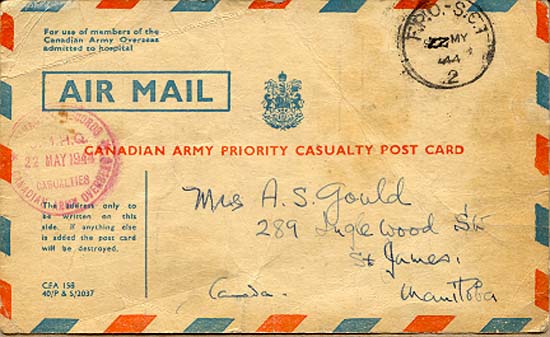 For use of members of the
Canadian Army Overseas
admitted to hospital
AIR MAIL
F.P.O.-S.C.1
22 MY
44
2
RECORDS
H.Q.
22 MAY 1944
CASUALTIES
CANADIAN ARMY OVERSEAS
CANADIAN ARMY PRIORITY CASUALTY POST CARD
The address only to
be written on this
side. If anything else
is added the post card
will be destroyed.
CFA 158
40/P & S/2037
Mrs A.S. Gould
289 Inglewood St
St James,
Manitoba
Canada.